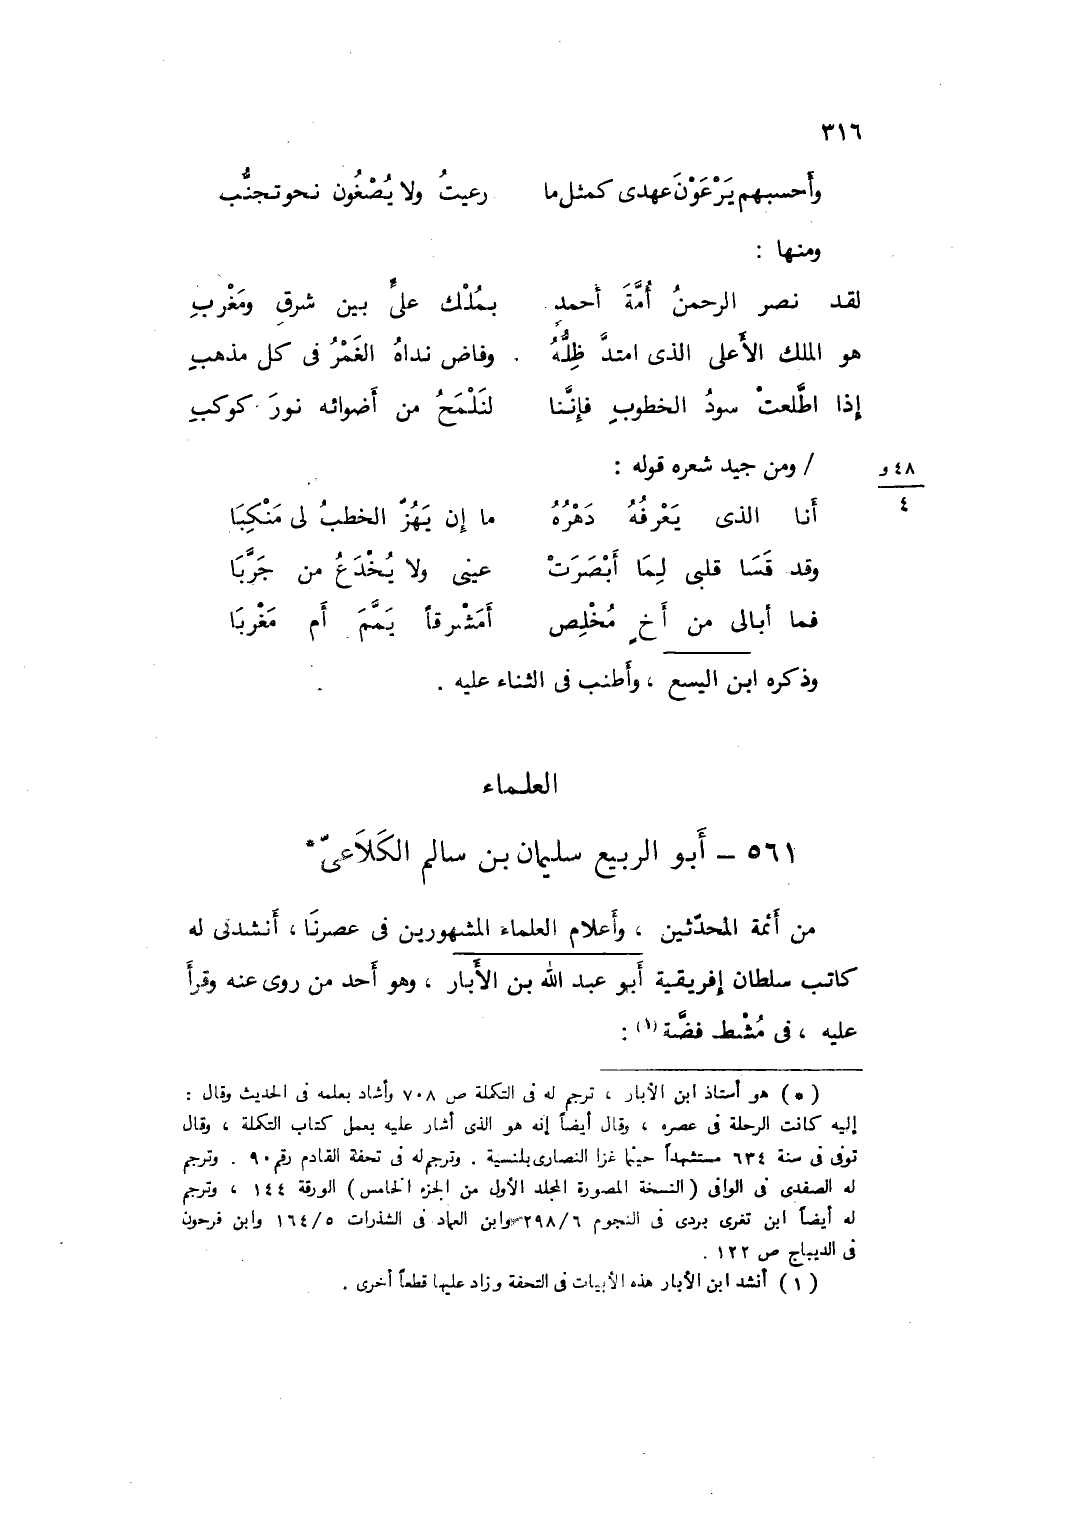 ٣١٦
وأَحسبهم يَرْعَوْنَ عهدى كمثل ما رعيتُ ولا يُصْغُون نحو تجنُّب
ومنها :
لقد نصر الرحمنُ أُمَّةَ أحمدٍ بمُلْك علىٍّ بين شرقٍ ومَغْربِ
هو الملك الأَعلى الذى امتدَّ ظِلُّهُ وفاض نداهُ الغَمْرُ فى كل مذهبِ
إذا اطَّلعتْ سودُ الخطوبِ فإنَّنا لنَلْمَحُ من أَضوائه نورَ كوكبِ
/ ومن جيد شعره قوله :
٤٨ و
٤
أَنا الذى يَعْرفُهُ دَهْرُهُ ما إن يَهُزّ الخطبُ لى مَنْكِبَا
وقد قَسَا قلبى لِمَا أَبْصَرَتْ عينى ولا يُخْدَعُ من جَرَّبَا
فما أبالى من أَخٍ مُخْلِص أَمَشْرقاً يَمَّمَ أَم مَغْربَا
وذكره ابن اليسع ، وأَطنب فى الثناء عليه .
العلماء
٥٦١ – أَبو الربيع سليمان بن سالم الكَلَاعىّ*
من أَئمة المحدّثين ، وأَعلام العلماء المشهورين فى عصرنَا ، أَنشدنى له
كاتب سلطان إفريقية أَبو عبد الله بن الأَبار ، وهو أَحد من روى عنه وقرأَ
عليه ، فى مُشْط فضَّة (١) :
(*) هو أستاذ ابن الأبار ، ترجم له فى التكملة ص ٧٠٨ وأشاد بعلمه فى الحديث وقال :
إليه كانت الرحلة فى عصره ، وقال أيضاً إنه هو الذى أشار عليه بعمل كتاب التكملة ، وقال
توفى فى سنة ٦٣٤ مستشهداً حينما غزا النصارى بلنسية . وترجم له فى تحفة القادم رقم ٩٠ . وترجم
له الصفدى فى الوافى (النسخة المصورة المجلد الأول من الجزء الخامس) الورقة ١٤٤ ، وترجم
له أيضاً ابن تغرى بردى فى النجوم ٢٩٨/٦ وابن العماد فى الشذرات ١٦٤/٥ وابن فرحون
فى الديباج ص ١٢٢ .
(١) أنشد ابن الأبار هذه الأبيات فى التحفة وزاد عليها قطعاً أخرى .